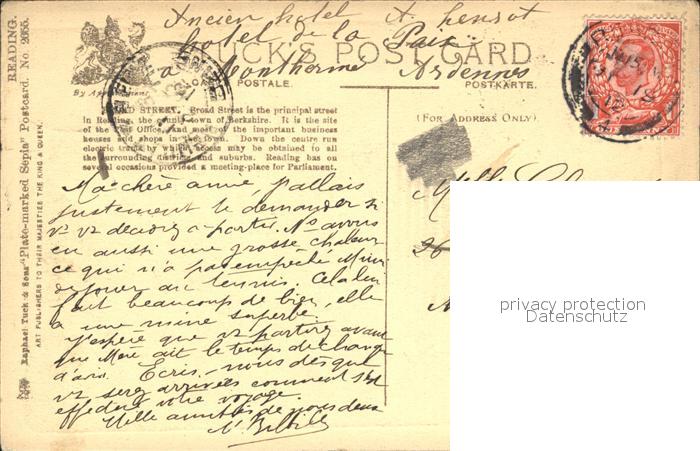 Ancien hotel A hensot
hotel de la Paix
TUCK'S POST CARD
a Monthermé Ardennes
By Appointment
POSTALE.
POSTKARTE.
(FOR ADDRESS ONLY).
READING.
Raphael Tuck & Sons' "Plate-marked Sepia" Postcard. No. 2655.
ART PUBLISHERS TO THEIR MAJESTIES THE KING & QUEEN.
STREET. Broad Street is the principal street
in Reading, the county town of Berkshire. It is the site
of the Post Office, and most of the important business
houses and shops in the town. Down the centre run
electric trams by which access may be obtained to all
the surrounding districts and suburbs. Reading has on
several occasions provided a meeting-place for Parliament.
Ma chère amie, J'allais
justement te demander si
vs vs décidez à partir. Ns avons
eu aussi une grosse chaleur
ce qui n'a pas empêché
de jouer au tennis. Cela lui
fait beaucoup de bien, elle
a une mine superbe.
J'espère que vs partirez avant
que Mère ait le temps de changer
d'avis. Ecris-nous dès que
vs serez arrivées comment s'est
effectué votre voyage.
Mille amitiés de nous deux
Mlle
privacy protection
Datenschutz